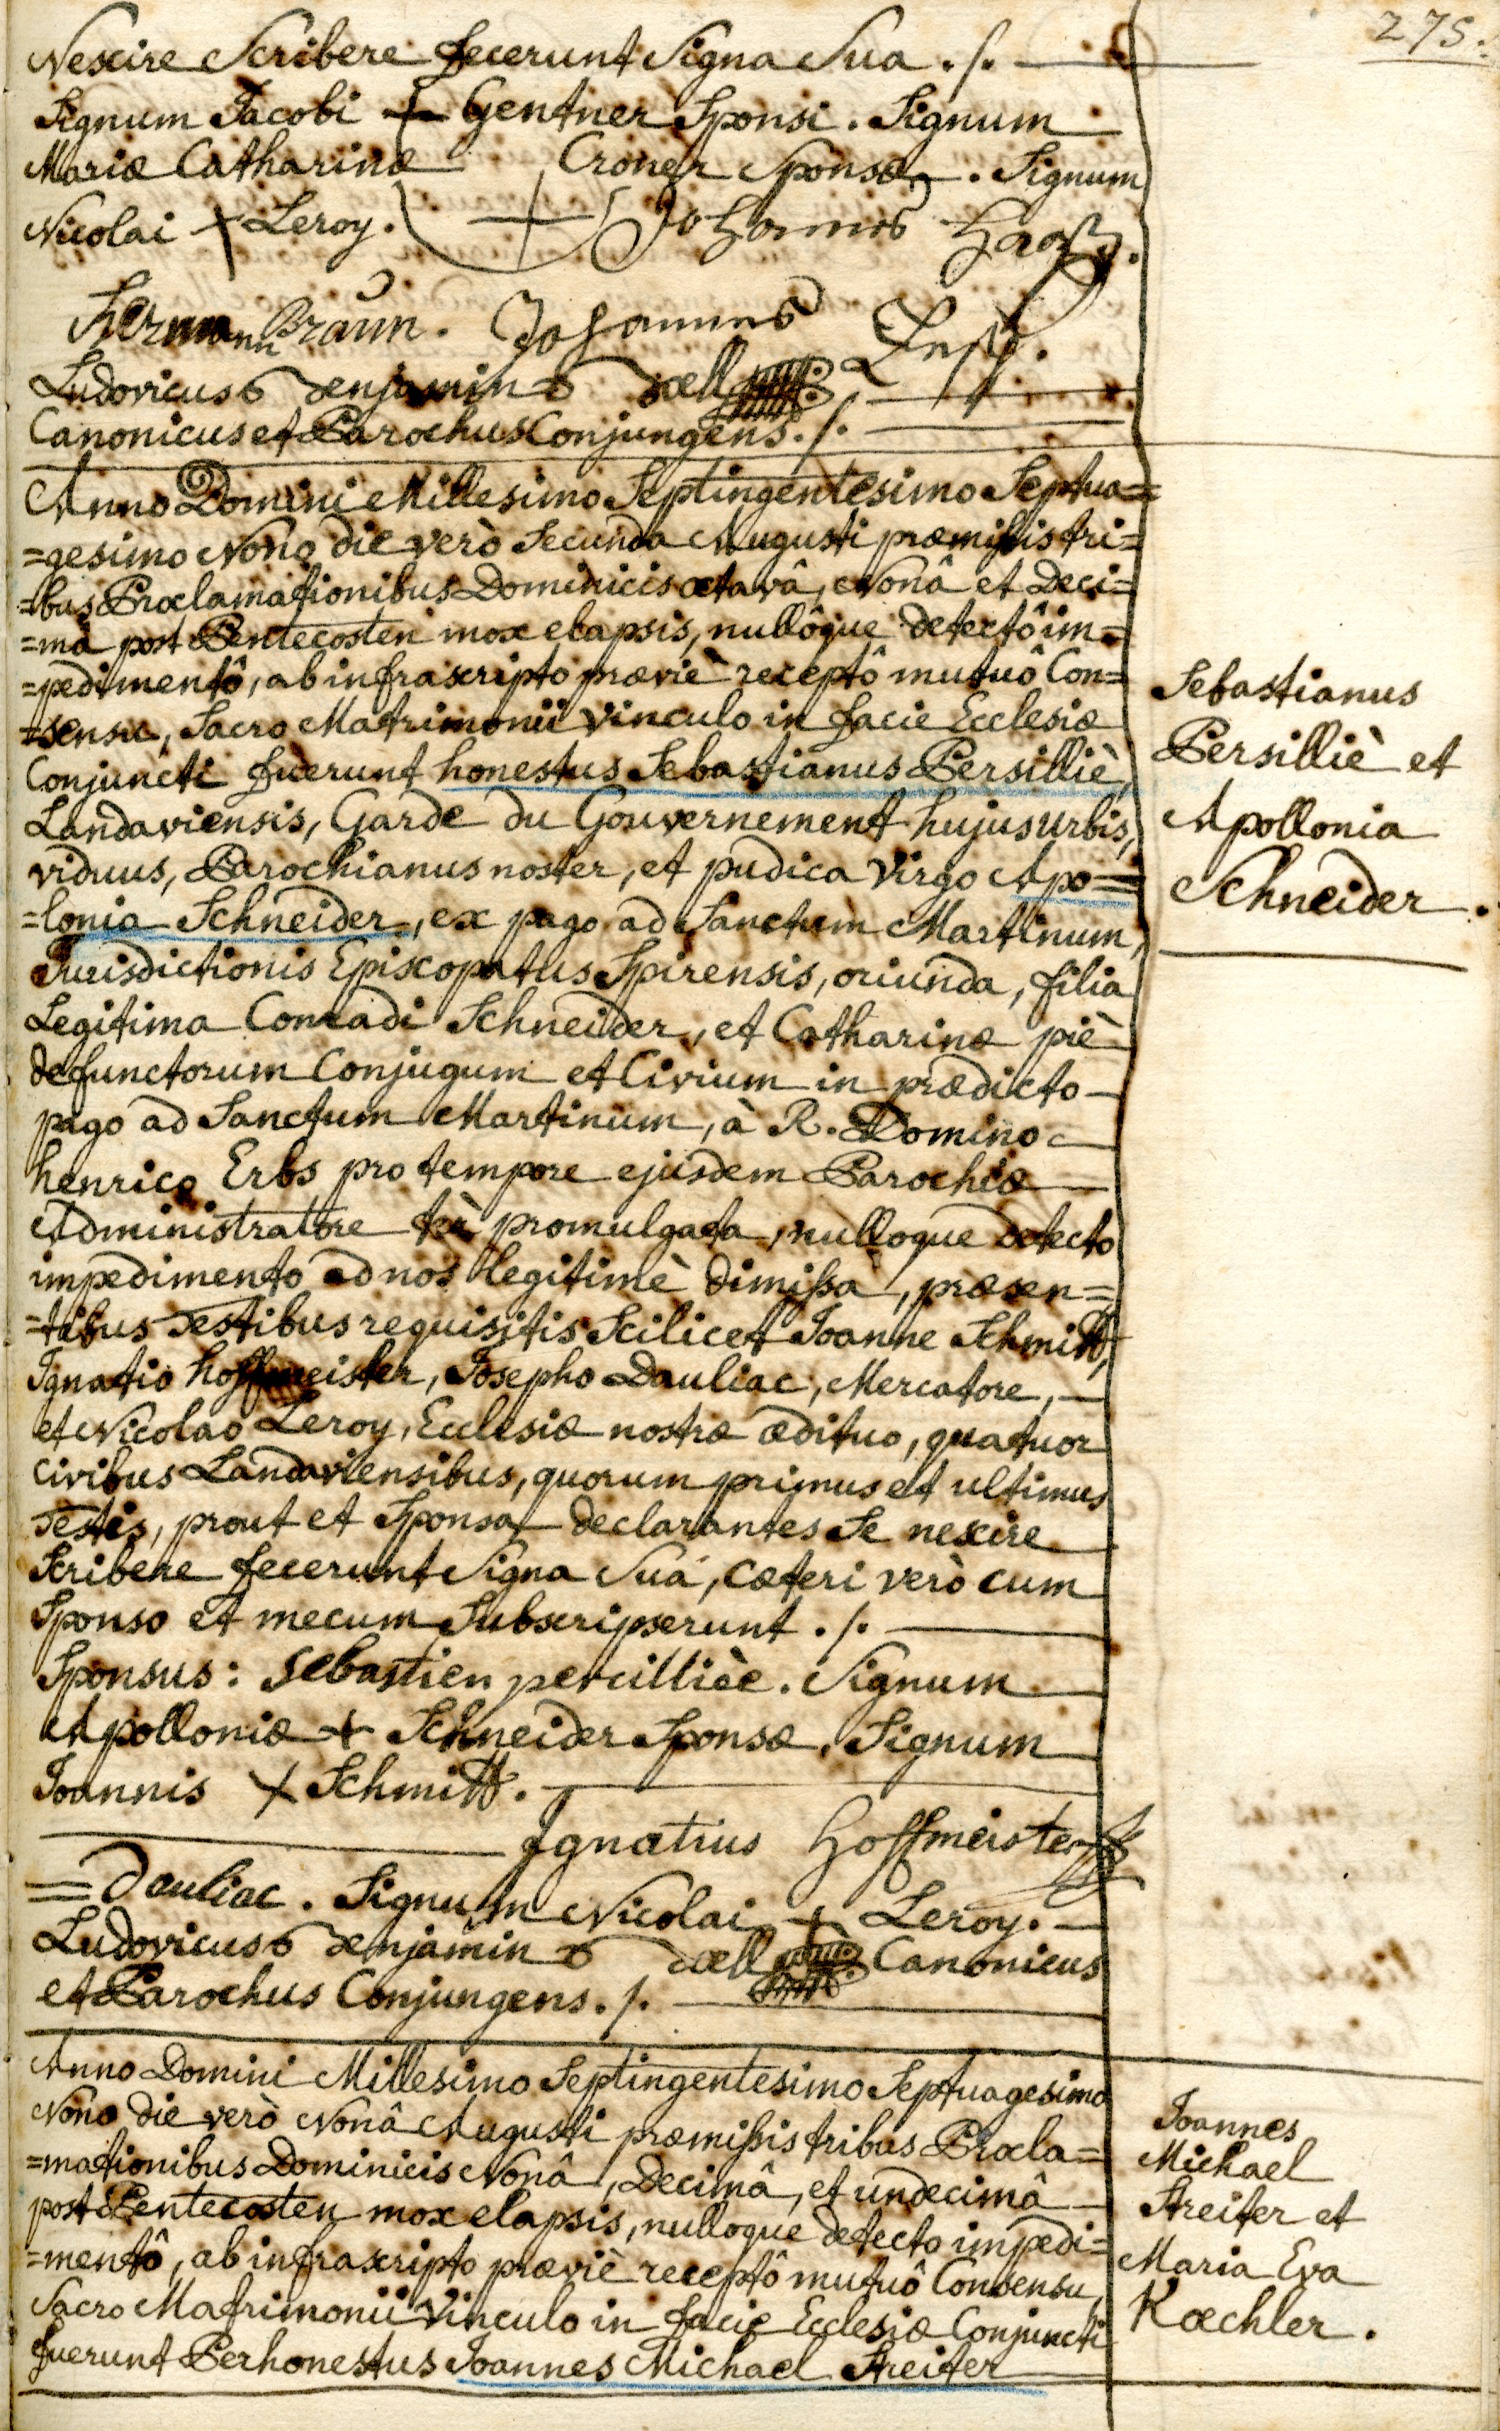 275.
Nescire Scribere fecerunt Signa Sua ./.
Signum Jacobi + Gentner Sponsi. Signum
Mariæ Catharinæ Croner Sponsæ. Signum
Nicolai + Leroy. + Johannes
Hermann Braun. Johannes
Ludovicus Benjamin Doell
Canonicus et Parochus Conjungens ./.
Anno Domini Millesimo Septingentesimo Septua=
=gesimo Nono die verò Secunda Augusti præmissis tri=
=bus Proclamationibus Dominicis octavâ, Nonâ et Deci=
=mâ post Pentecosten mox elapsis, nullôque detectô im=
=pedimentô, ab infrascripto præviè receptô mutuô Con=
=sensu, Sacro Matrimonii Vinculo in facie Ecclesiæ
Conjuncti fuerunt honestus Sebastianus Persilliè,
Landaviensis, Garde du Gouvernement hujus urbis,
viduus, Parochianus noster, et pudica Virgo Apo=
=lonia Schneider, ex pago ad Sanctum Martinum,
Jurisdictionis Episcopatus Spirensis, oriunda, filia
Legitima Conradi Schneider, et Catharinæ piè
defunctorum Conjugum et Civium in prædicto
pago ad Sanctum Martinum, à R. Domino
henrico Erbs pro tempore ejusdem Parochiæ
Administratore ter promulgata, nulloque detecto
impedimento ad nos legitimè dimissa, præsen=
=tibus Testibus requisitis Scilicet Joanne Schmitt,
Ignatio hoffmeister, Josepho Dauliac, Mercatore,
et Nicolao Leroy, Ecclesiæ nostræ ædituo, quatuor
Civibus Landaviensibus, quorum primus et ultimus
Testis, prout et Sponsa declarantes Se nescire
Scribere fecerunt Signa Sua, Cæteri verò cum
Sponso et mecum Subscripserunt ./.
Sponsus: Sebastien percillièe. Signum
Apolloniæ + Schneider Sponsæ. Signum
Joannis + Schmitt.
Ignatius Hoffmeister
= Dauliac. Signum Nicolai + Leroy.
Ludovicus Benjamin Doell Canonicus
et Parochus Conjungens ./.
Anno Domini Millesimo Septingentesimo Septuagesimo
Nono die verò Nonâ Augusti præmissis tribus Procla=
=mationibus Dominicis Nonâ, Decimâ, et undecimâ
post Pentecosten mox elapsis, nulloque detecto impedi=
=mentô, ab infrascripto præviè receptô mutuô Consensu,
Sacro Matrimonii Vinculo in facie Ecclesiæ Conjuncti
fuerunt Perhonestus Joannes Michael Streiter
Sebastianus
Persilliè et
Apollonia
Schneider.
Joannes
Michael
Streiter et
Maria Eva
Kœchler.